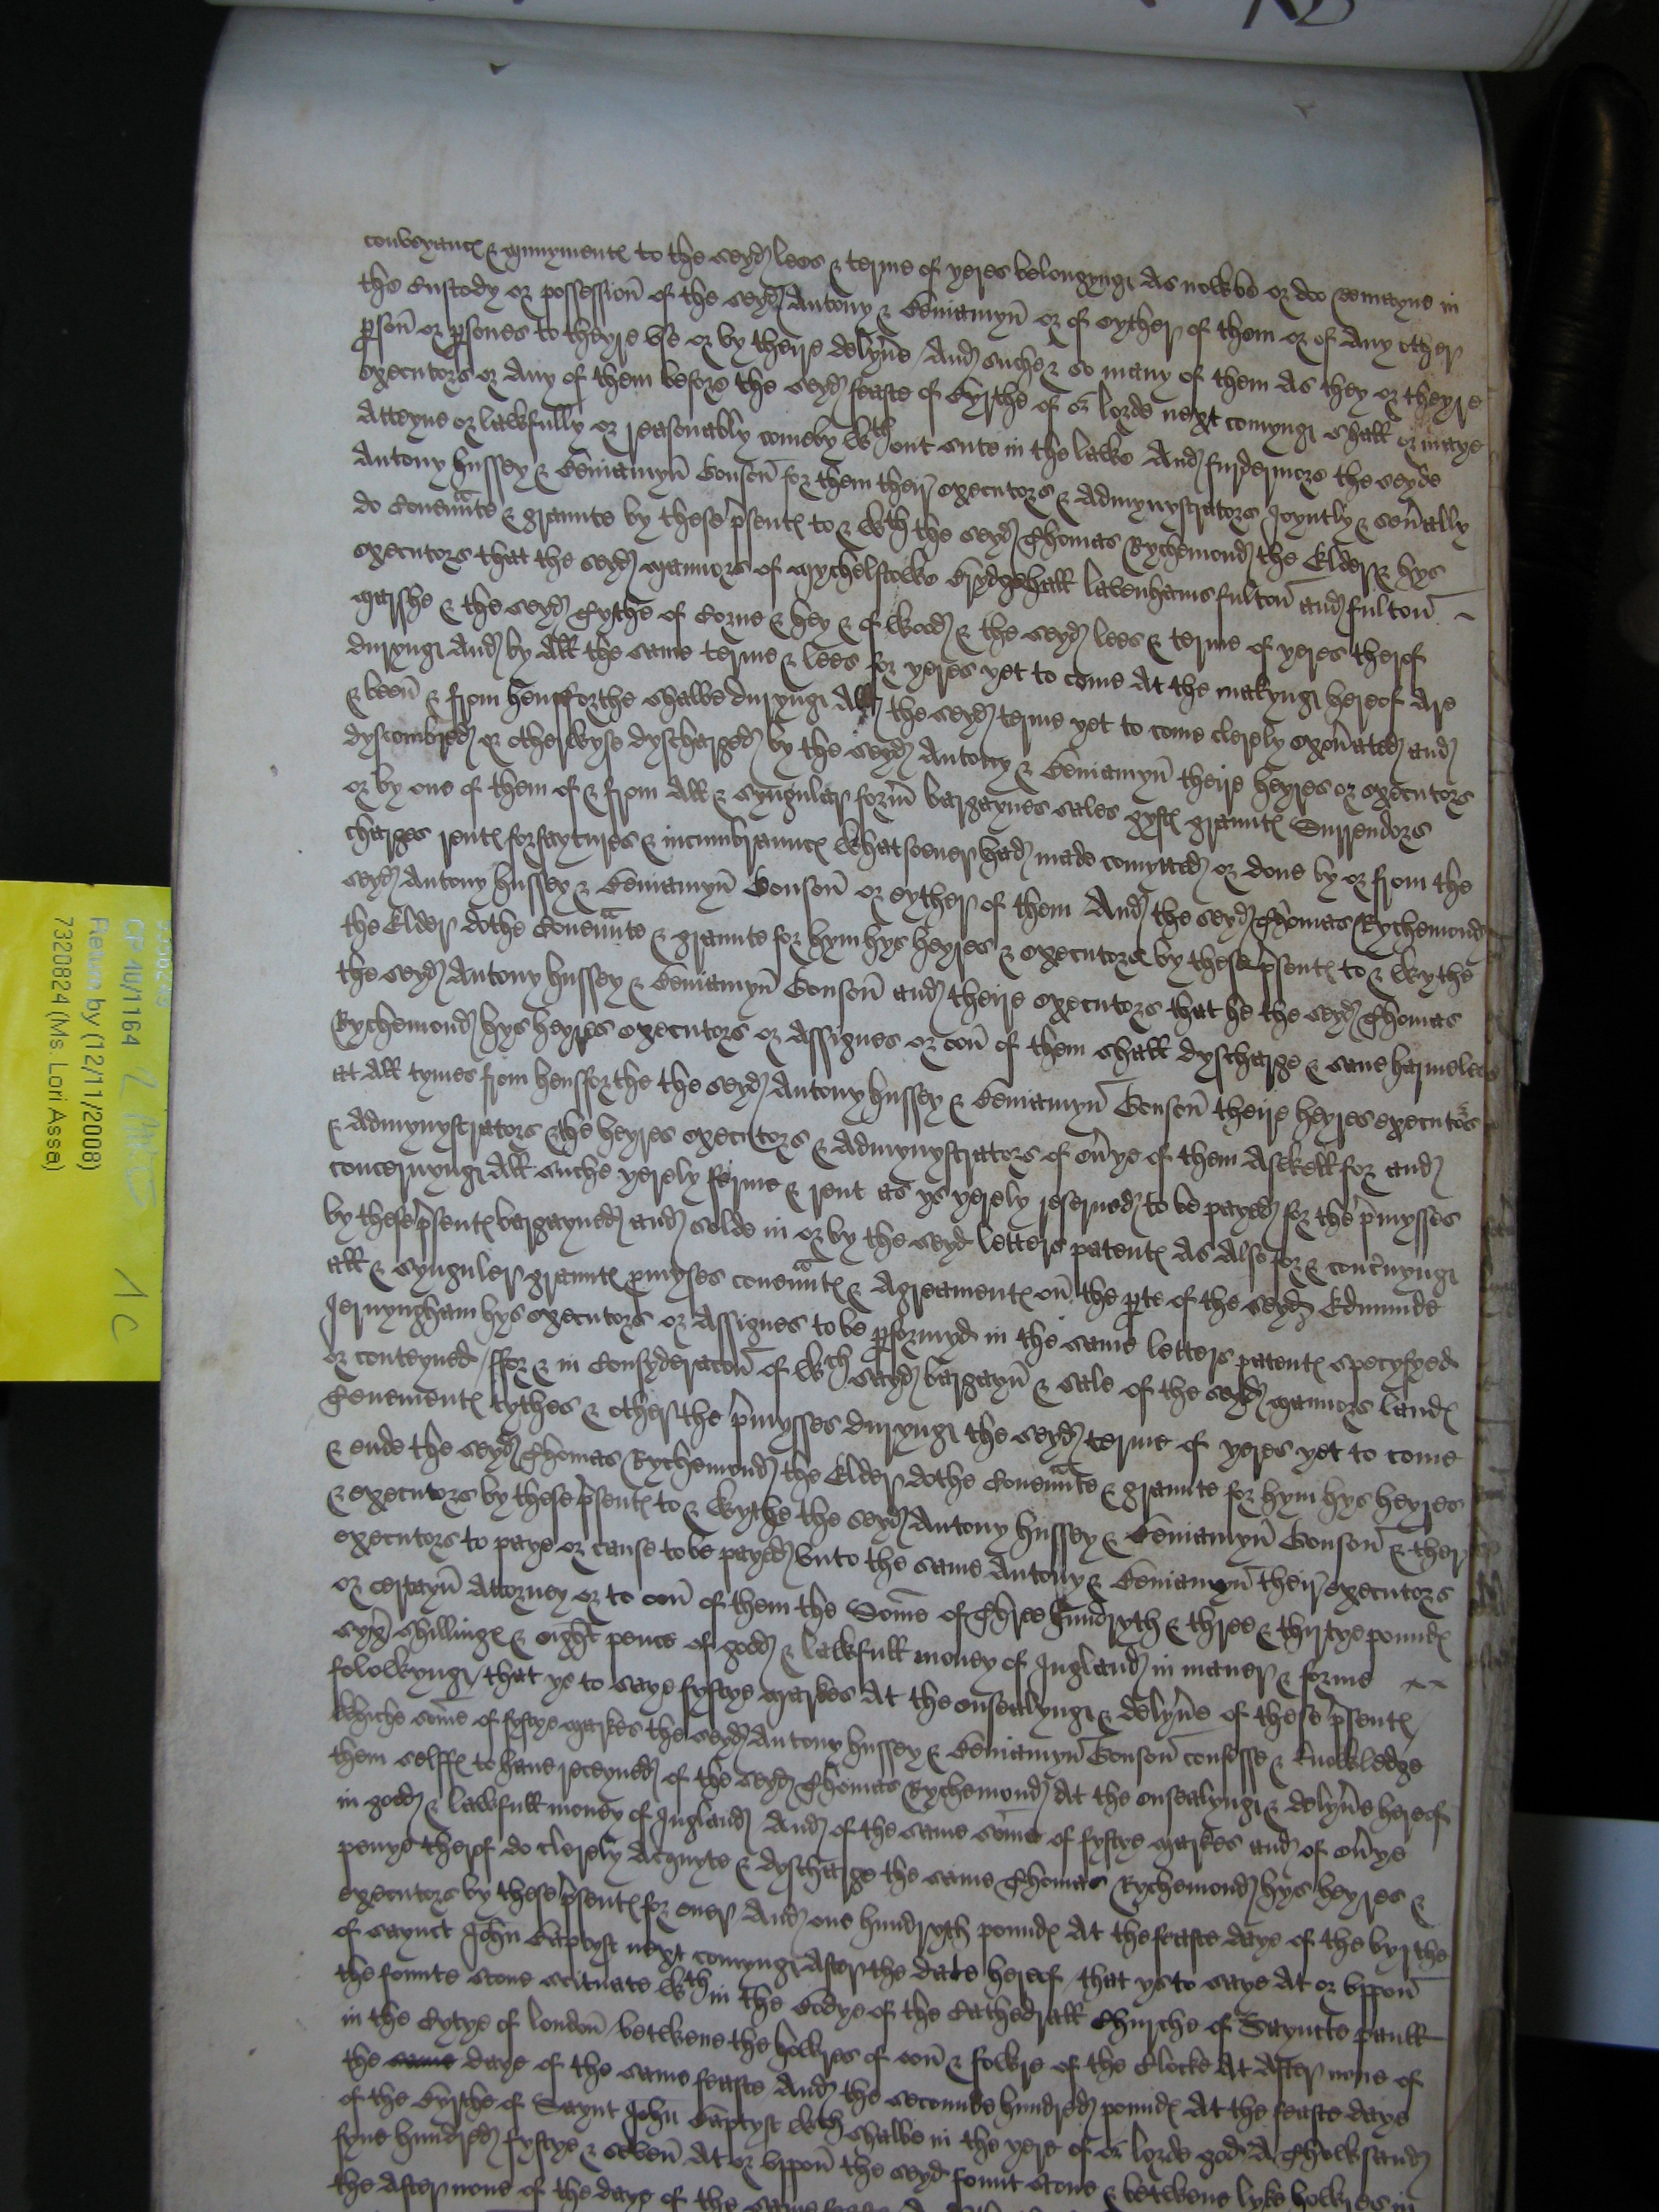 conveyancꝭ & mynymentꝭ to the seyd lees & terme of yeres belongyng As nowbe or doo remayne in
the custody or possession of the seyd Antony & Beniamyn or of eyther of them or of Any other
pson or psones to theyre vse or by theire delyue And suche & so many of them As they or theyre
executors or Any of them before the seyd feaste of Byrthe of or lorde next comyng shall or maye
Atteyne or lawfully or reasonably comeby wth out sute in the lawe And furdermore the seyde
Antony hussey & Beniamyn Gonson for them their executors & Admynystrators Joyntly & seually
do Couenaute & graunte by these psentꝭ to & wth the seyd Thomas Rychemond the Elder & hys
executors that the seyd Mannors of Mychelstowe Brydgehall lavenhams fulton and fulton
Marshe & the seyd Tythe of Corne & hey & of wood & the seyd lees & terme of yeres therof
duryng And by All the same terme & lees for yeres yet to come At the makyng hereof Are
& been & from hensfforthe shalbe duryng All the seyd terme yet to come clerely exonated and
dyscombred or otherwyse dyscharged by the seyd Antony & Beniamyn theire heyres or executors
or by one of them of & from All & Syngular form bargaynes sales gyftꝭ grauntꝭ Surrendors
charges rentꝭ forfaytures & incumbrauncꝭ whatsoeuer had made comytted or done by or from the
seyd Antony hussey & Beniamyn Gonson or eyther of them And the seyd Thomas Rychemond
the Elder dothe Couenaute & graunte for hym hys heyres & executors by these psentꝭ to & wythe
the seyd Antony hussey & Beniamyn Gonson and theire executors that he the seyd Thomas
Rychemond hys heyres executors or Assignes or oon of them shall dyscharge & saue harmelees
at All tymes from hensfforthe the seyd Antony hussey & Beniamyn Gonson theire heyres executors
& Admynystrators & the heyres executors & Admynystrators of euye of them Aswell for and
concernyng All suche yerely ferme & rent as ys yerely reserued to be payed for the pmysses
by these psentꝭ bargayned and solde in or by the seyd letters patentꝭ As Also for & concnyng
all & Synguler grauntꝭ pmyses couenautꝭ & Agreamentꝭ on the pte of the seyd Edmunde
Jernyngham hys executors or Assignes to be pformyd in the same letters patentꝭ specyfyed
or conteyned / ffor & in Consyderacon of wch sayd bargayn & sale of the seyd Mannors landꝭ
Tenementꝭ tythes & other the pmysses duryng the seyd terme of yeres yet to come
& ende the seyd Thomas Rychemond the Elder dothe Couenaute & graunte for hym hys heyres
& executors by these psentꝭ to & wythe the seyd Antony hussey & Beniamyn Gonson & ther
executors to paye or cause to be payed vnto the same Antony & Beniamyn their executors
or certayn Attorney or to oon of them the Some of Three hundryth & three & thirtye poundꝭ
syx shillingꝭ & eight pence of good & lawfull money of Jngland in maner & forme
folowyng / that ys to saye fyftye Markes At the ensealyng & delyue of these psentꝭ /
whiche some of fyftye Markes the seyd Antony hussey & Beniamyn Gonson confesse & knowledge
them selffꝭ to haue receyued of the seyd Thomas Rychemond At the ensealyng & delyue hereof
in good & lawfull money of Jngland And of the same some of fyftye Markes and of euye
penye therof do clerely Acquyte & dyscharge the same Thomas Rychemond hys heyres &
executors by these psentꝭ for euer And one hundryth poundꝭ At the feaste daye of the byrthe
of saynct John Baptyst next comyng After the date hereof / that ys to saye At or vppon
the founte stone scituate wth in the Bodye of the Cathedrall Churche of Sayncte paull
in the Cytye of london / betwene the howres of oon & fowre of the Clocke At After none of
the daye of the same feaste And the seconnde hundred poundꝭ At the feaste daye
of the Byrthe of Saynt John Baptyst wch shalbe in the yere of or lorde god A Thowsand
fyue hundred fyftye & seven At or vppon the seyd fount stone & betwene lyke howres in
the Afternone of the daye of the same feaste
CP 40/1164
Return by (12/11/2008)
7320824 (Ms. Lori Asse)
1 C